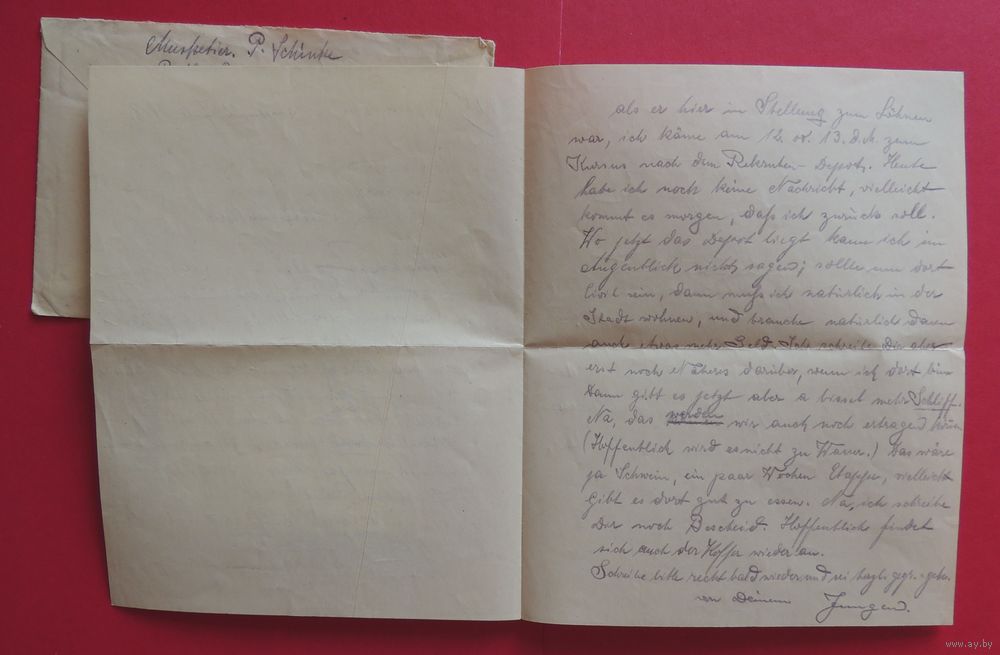 Musketier. P. Schinke
als er hier in Stellung zum Löhnen
war, ich käme am 12. od. 13. d. M. zum
Kursus nach dem Rekruten-Depot. Heute
habe ich noch keine Nachricht, vielleicht
kommt es morgen, daß ich zurück soll.
Wo jetzt das Depot liegt kann ich im
Augenblick nicht sagen; sollte nun dort
Civil sein, dann muß ich natürlich in der
Stadt wohnen, und brauche natürlich dann
auch etwas mehr Geld. Ich schreibe Dir aber
erst noch Näheres darüber, wenn ich dort bin
Dann gibt es jetzt aber a bissel mehr Schliff.
Na, das werden wir auch noch ertragen können
(Hoffentlich wird es nicht zu Wasser.) Das wäre
ja Schwein, ein paar Wochen Etappe, vielleicht
gibt es dort gut zu essen. Na, ich schreibe
Dir noch Bescheid. Hoffentlich findet
sich auch der Koffer wieder an.
Schreibe bitte recht bald wieder und sei herzl. gegr. u. gek.
von Deinem Jungen.
www.ay.by